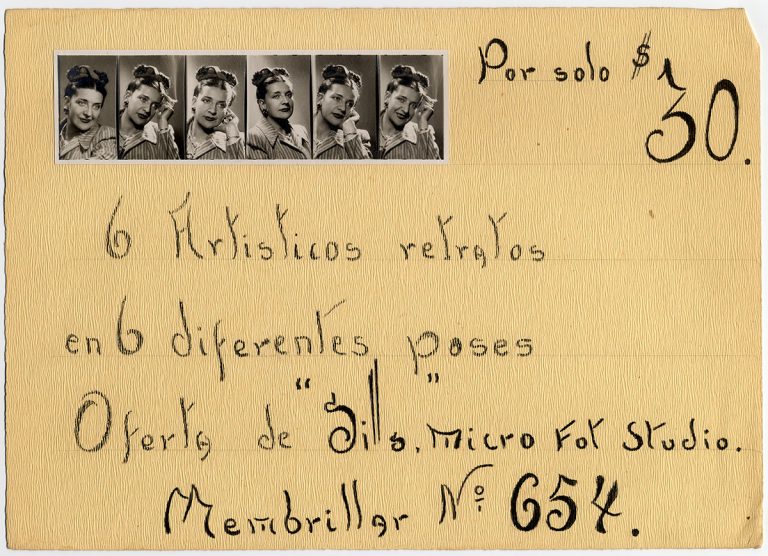 Por solo $30.
6 Artisticos retratos
en 6 diferentes poses
Oferta de "Sills, Micro Fot Studio.
Membrillar Nº 654.